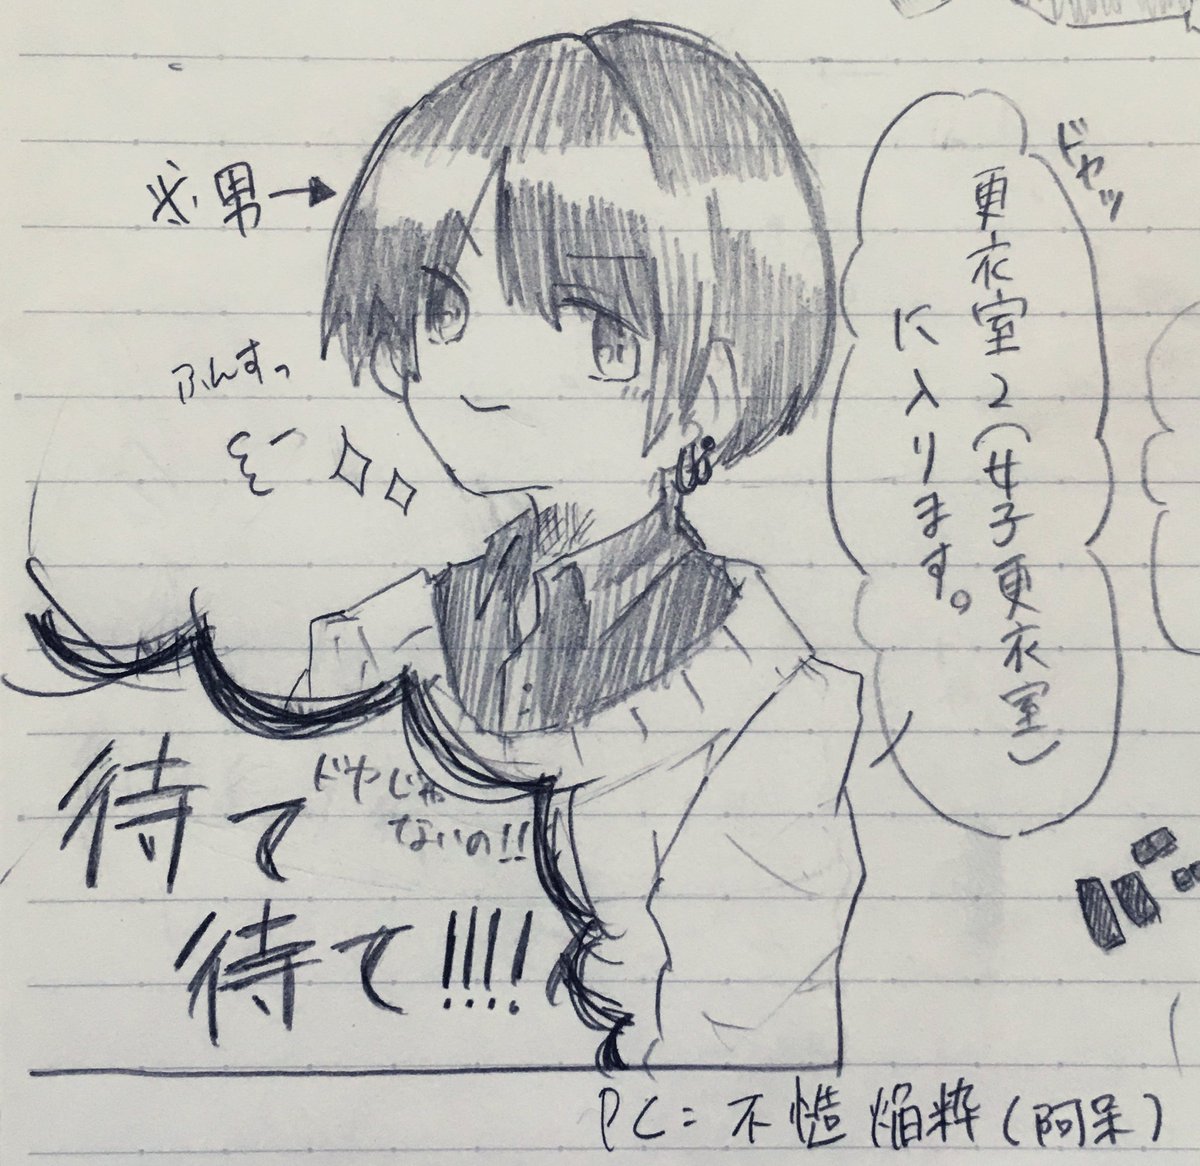 ドヤッ
更衣室2(女子更衣室)
に入ります。
※男→
ふんすっ
待て
待て!!!!
ドヤじゃ
ないの!!
PC=不慥焔粋(阿呆)